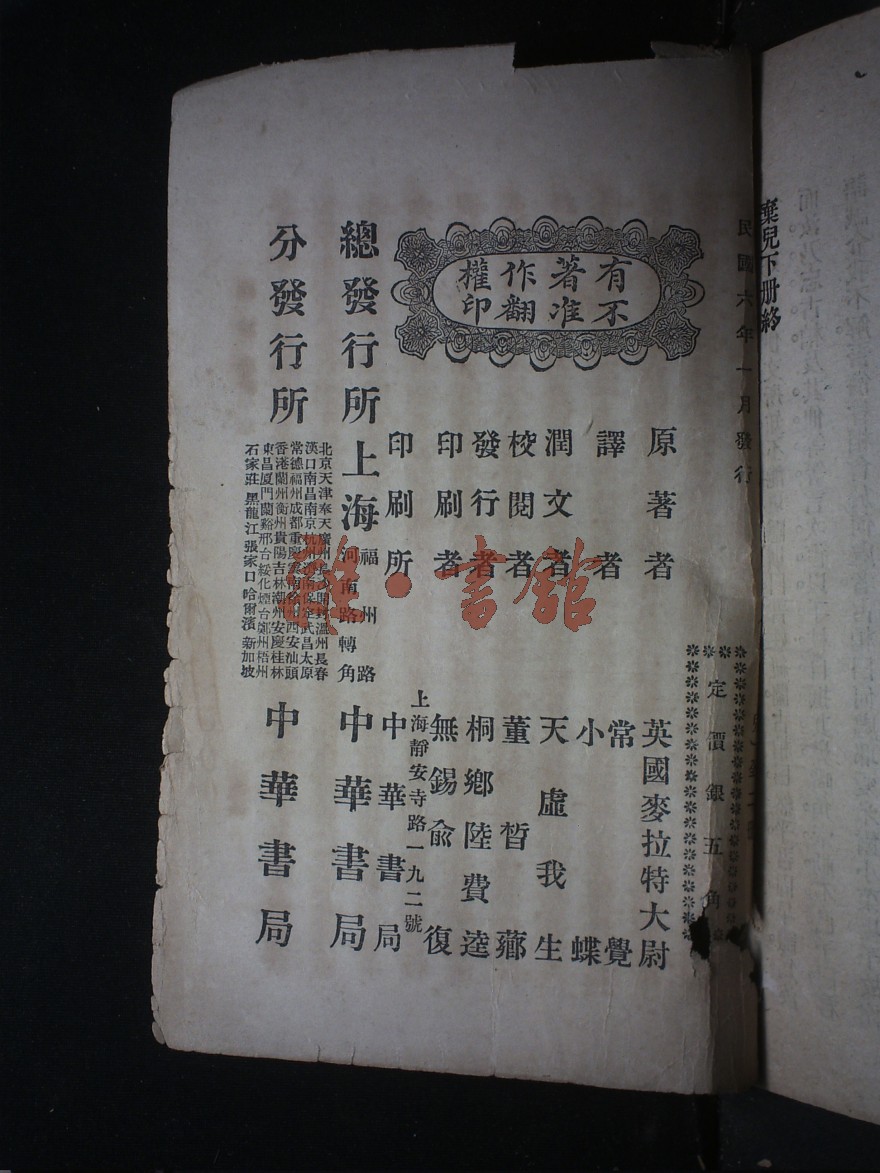 棄兒下册終
民國六年一月發行
定價銀五角
有著作權
不准翻印
原著者 英國麥拉特大尉
譯者 常覺 小蝶
潤文者 天虛我生
校閱者 董皙薌
發行者 桐鄉陸費逵
印刷者 無錫俞復
印刷所 上海靜安寺路一九二號 中華書局
總發行所 上海 福州路 河南路轉角 中華書局
分發行所 中華書局
北京天津奉天廣州
溫州長春
漢口南昌南京杭州
武昌太原
常德福州成都重慶
西安汕頭
香港蘭州衡州貴陽吉林潮州安慶桂林
東昌厦門蘭谿邢台綏化煙台鄭州梧州
石家莊 黑龍江 張家口 哈爾濱 新加坡
雅·書館